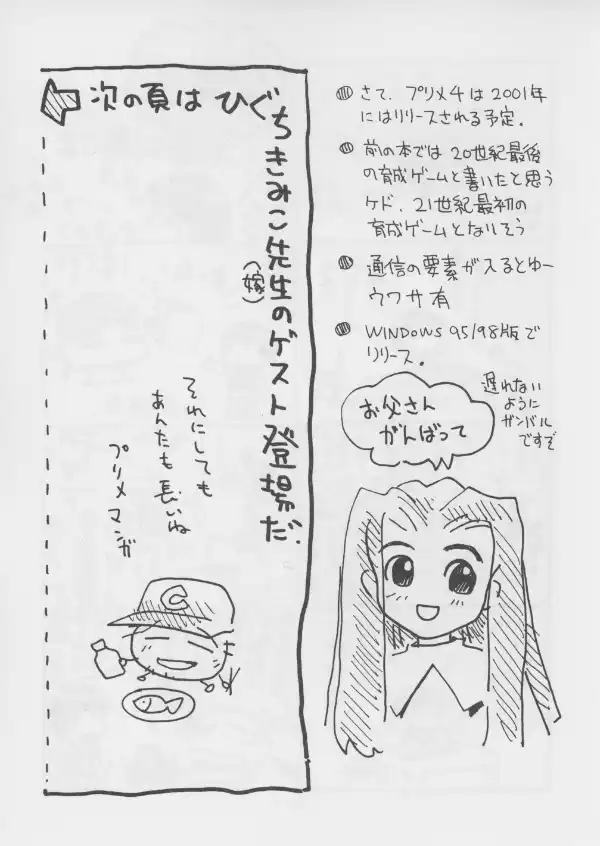 さて、プリメ4は2001年
にはリリースされる予定.
前の本では20世紀最後
の育成ゲームと書いたと思う
ケド、21世紀最初の
育成ゲームとなりそう
通信の要素が入るとゆー
ウワサ有
WINDOWS 95/98版で
リリース.
遅れない
ように
ガンバル
ですぞ
お父さん
がんばって
次の頁は ひぐちきみこ先生(嫁)のゲスト登場だ.
それにしても
あんたも長いね
プリメマンガ
C